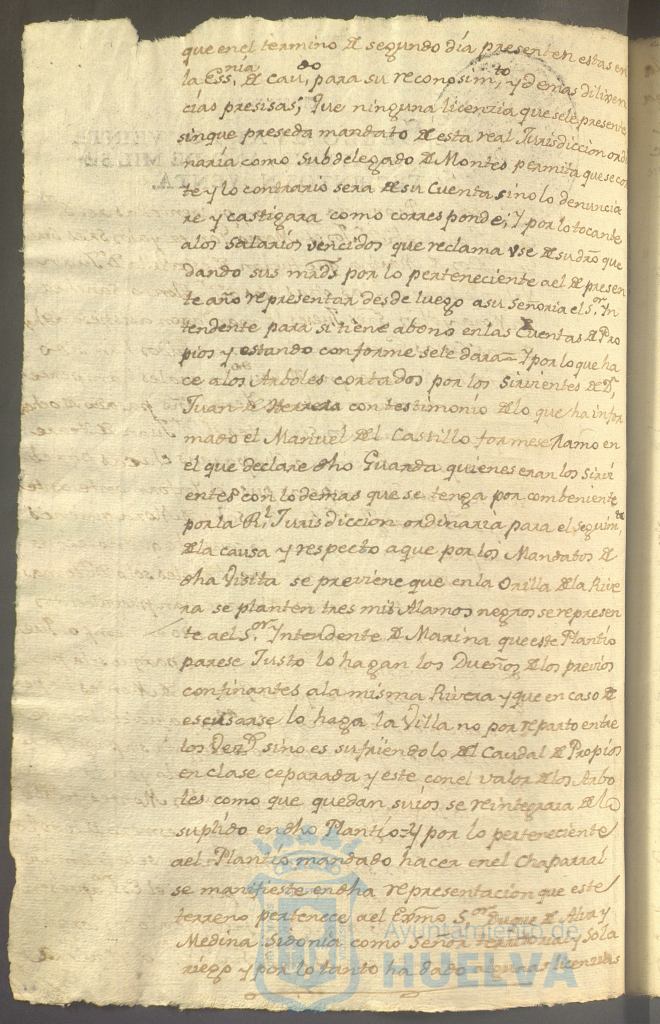 que en el termino de segundo día presenten estas en
la Essnía de Cavdo, para su reconosimto, y demas dilixen
cias presisas; Que ninguna licenzia que sele presente
sin que preseda mandato de esta real Jurisdiccion ordi
naria como Subdelegado de Montes permita que se cor
te y lo contrario sera de su Cuenta si no lo denuncia
re y castigara como corresponde; Y por lo tocante
alos Salarios vencidos que reclama vse de su dro que
dando sus mrds por lo perteneciente a el de presen
te año representar desde luego a su Señoria el Sor In
tendente para si tiene abono en las Cuentas de Pro
pios y estando conforme sele dara = Y por lo que ha
ce alos Arboles cortados por los Sirvientes de Dn
Juan de Herrera con testimonio de lo que ha infor
mado el Manuel del Castillo formese Ramo en
el que declare dho Guarda quienes eran los Sirvi
entes con lo demas que se tenga por combeniente
por la Rl Jurisdiccion ordinaria para el seguimto
de la causa y respecto a que por los Mandatos de
dha Visita se previene que en la Orilla de la Rive
ra se planten tres mil Alamos negros se represen
te a el Sor Intendente de Marina que este Plantío
parese Justo lo hagan los Dueños de los previos
confinantes ala misma Rivera y que en caso de
escusarse lo haga la Villa no por reparto entre
los Vezs sino es sufriendolo del Caudal de Propios
en clase ceparada y este con el valor de los Arbo
les como que quedan suios se reintegrara de lo
suplido en dho Plantío = Y por lo perteneciente
a el Plantío mandado hacer en el Chaparral
se manifieste en dha representacion que este
terreno pertenece a el Exmo Sor Duque de Alva y
Medina Sidonia como Señor territorial y Sola
riego y por lo tanto ha dado algunas licenzias
Ayuntamiento de
HUELVA